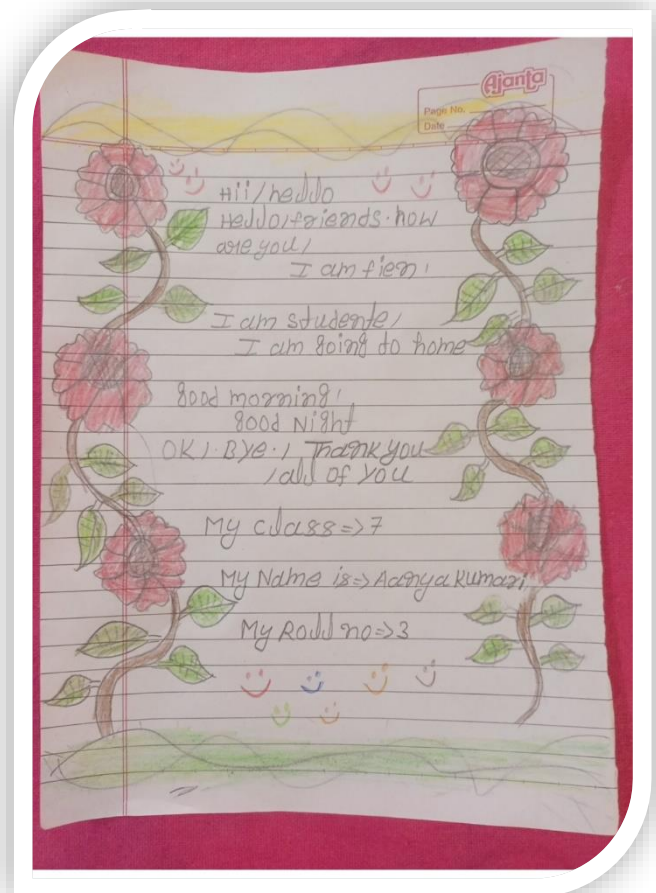 Ajanta
Page No.
Date
Hii/hello
Hello/friends. how
are you/
I am fien!
I am studente/
I am going to home
good morning!
good Night
OK/. Bye./ Thank you
/all of you
My class=>7
My Name is=> Aanya Kumari
My Roll no=>3